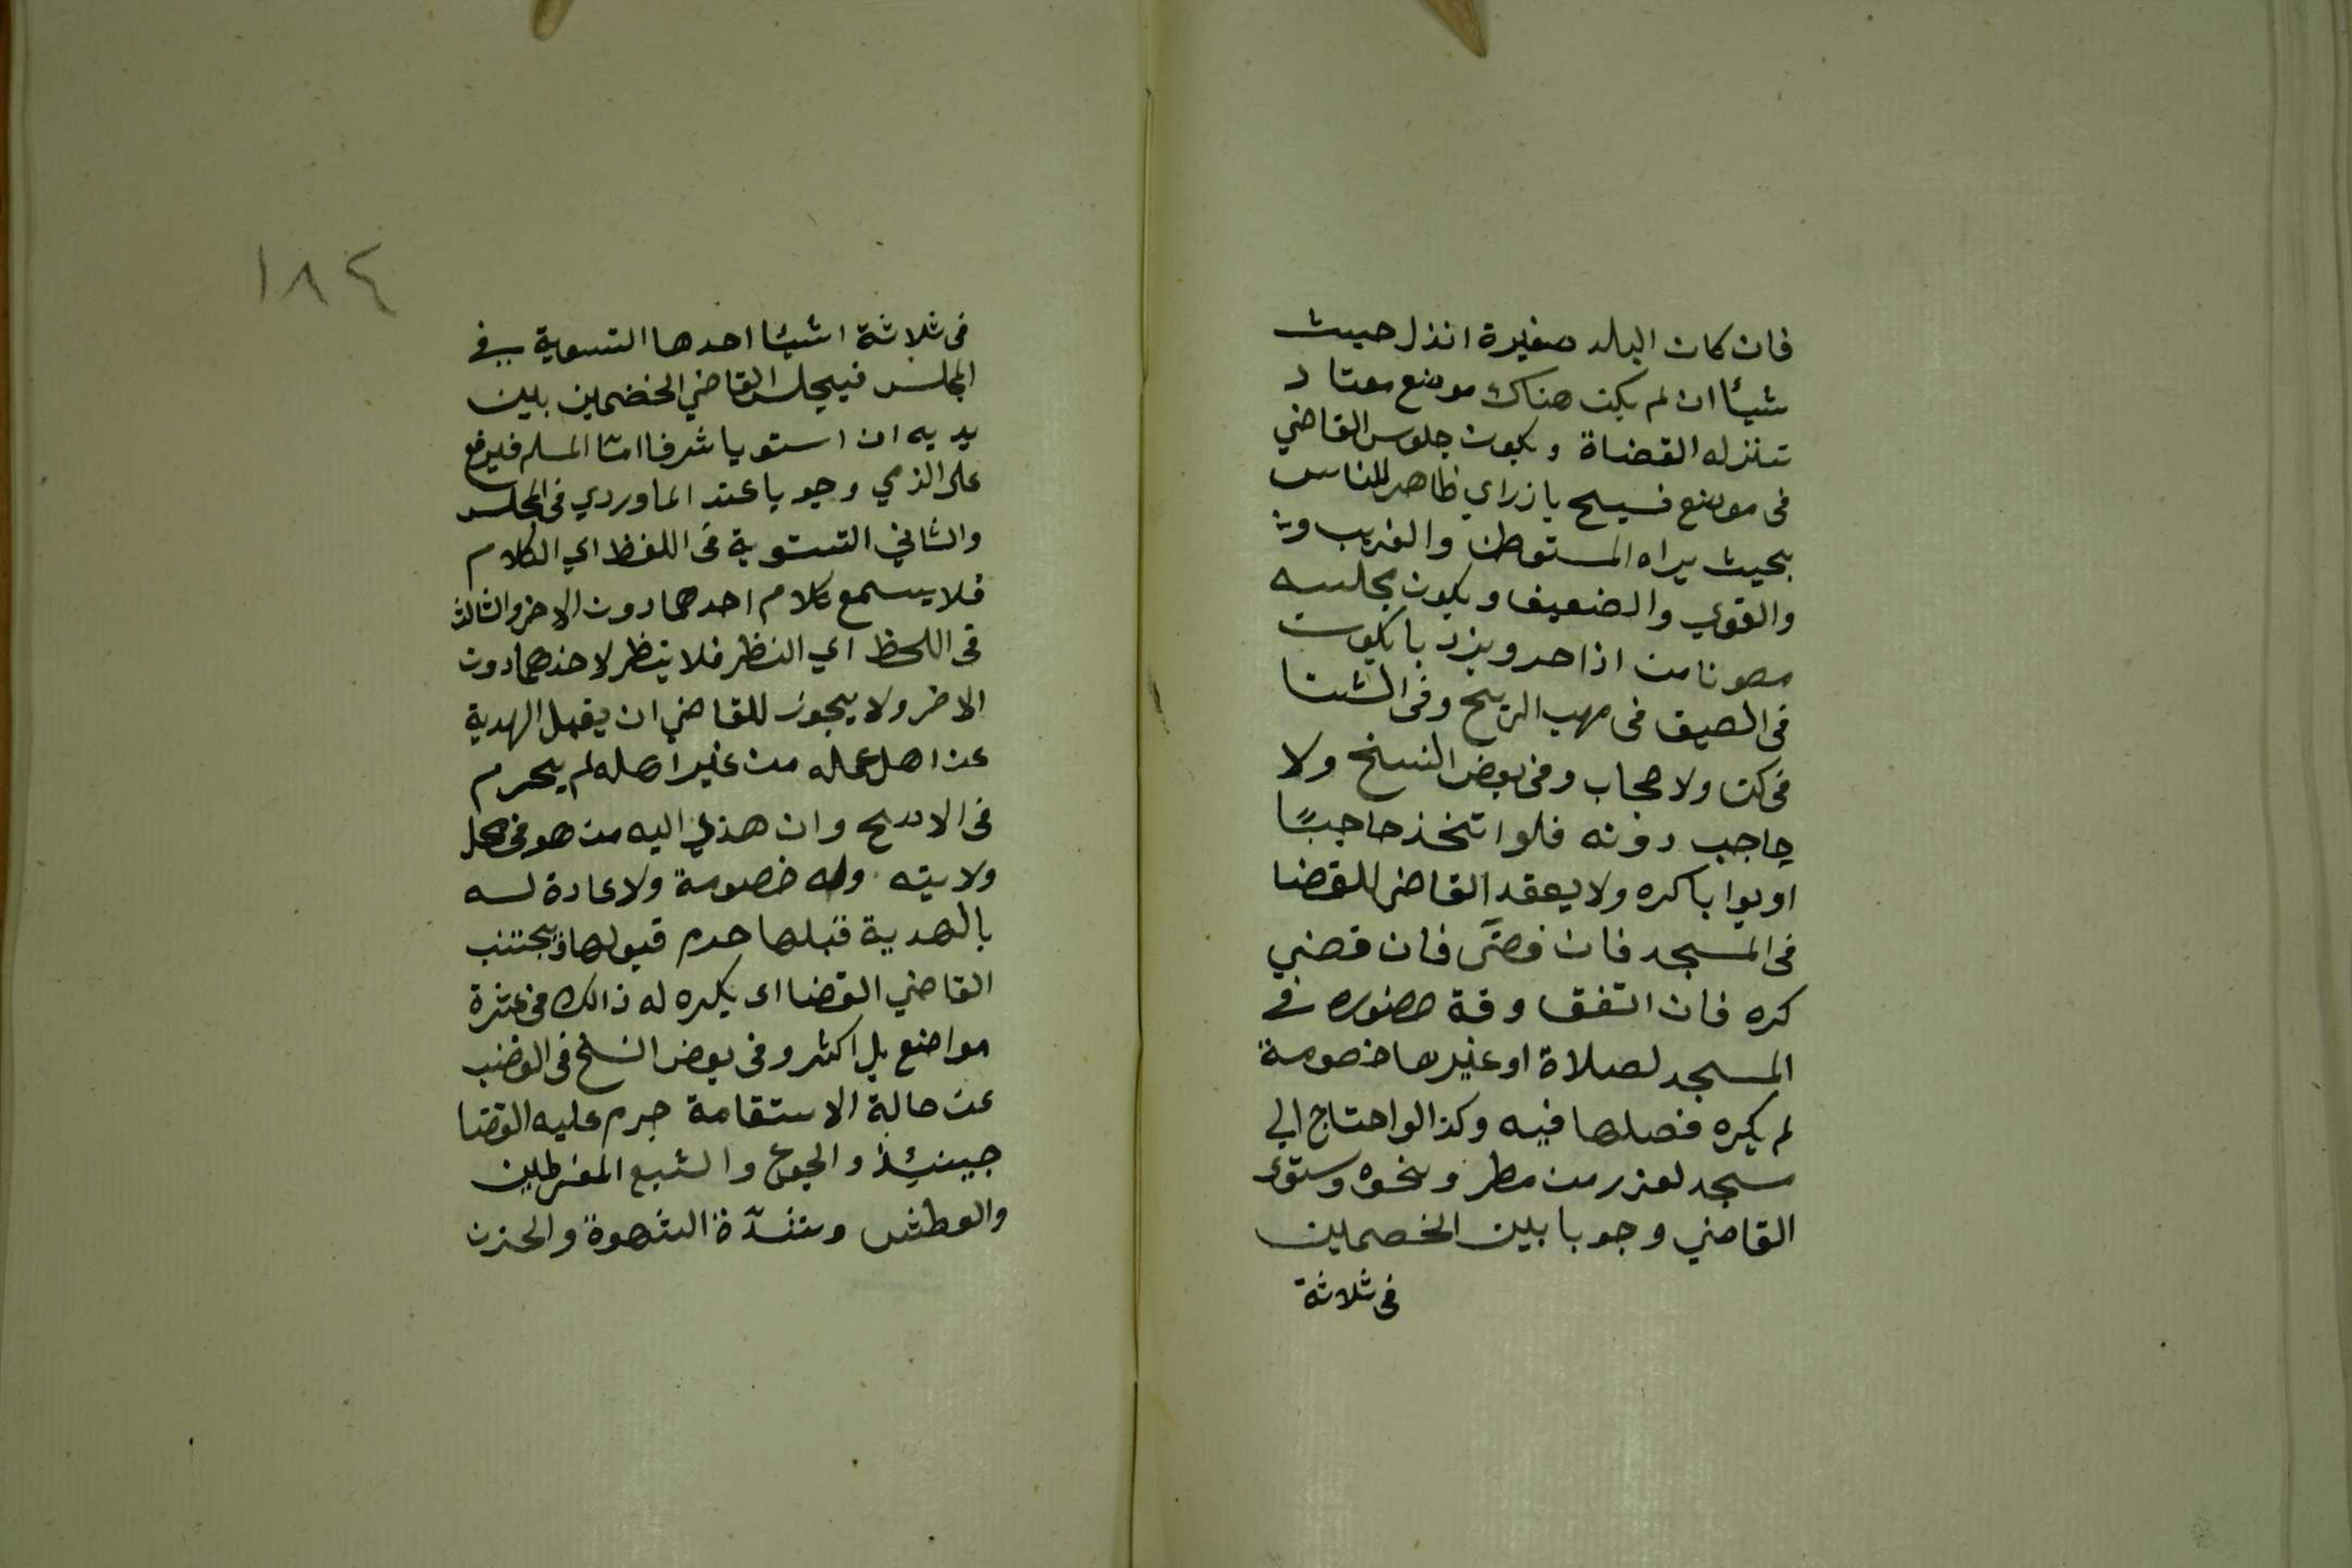 فان كان البلد صغيرة انذل حيث
شيئا ان لم يكن هناك موضع معتاد
تنزله القضاة ويكون جلوس القاضي
فى موضع فسيح بازراي ظاهر للناس
بحيث يراه المستوطن والغريب و
والقوي والضعيف ويكون مجلسه
مصونا من اذا حر وبرد بايكون
فى الصيف فى مهب الريح وفى الشتا
فى كن ولا حجاب وفى بعض النسخ ولا
حاجب دونه فلو اتخذ حاجبًا
او بوابا كره ولا يعقد القاضى للقضا
فى المسجد فان قضى فان قضي
كره فان اتفق وقة حضوره في
المسجد لصلاة او غيرها خصومة
لم يكره فصلها فيه وكذا لو احتاج الي
مسجد لعزر من مطر ونحوه وسوى
القاضي وجوبا بين الخصمين
فى ثلاثة
١٨٤
فى ثلاثة اشيئا احدها التسوية في
المجلس فيجلس القاضي الخضمين بين
يديه ان استويا شرفا امّا المسلم فيرفع
على الذمي وجوبا عند الماوردي فى المجلس
والثاني التستوية فى اللفظ اي الكلام
فلا يسمع كلام احدهما دون الاخر والثالث
فى اللحظ اي النظر فلا ينظر لاحدهما دون
الاخر ولا يجوز للقاضي ان يقبل الهدية
عن اهل عمله من غير اهله لم يحرم
فى الاصح وان هذي اليه من هو فى محل
ولايته وله خصومة ولا عادة له
بالهدية قبلها حرم قبولها ويجتنب
القاضي القضا اى يكره له ذالك فى عشرة
مواضع بل اكثر وفى بعض النسخ فى الغضب
عن حالة الاستقامة حرم عليه القضا
حينئذ والجوع والشبع المفرطين
والعطش وشدّة الشهوة والحزن